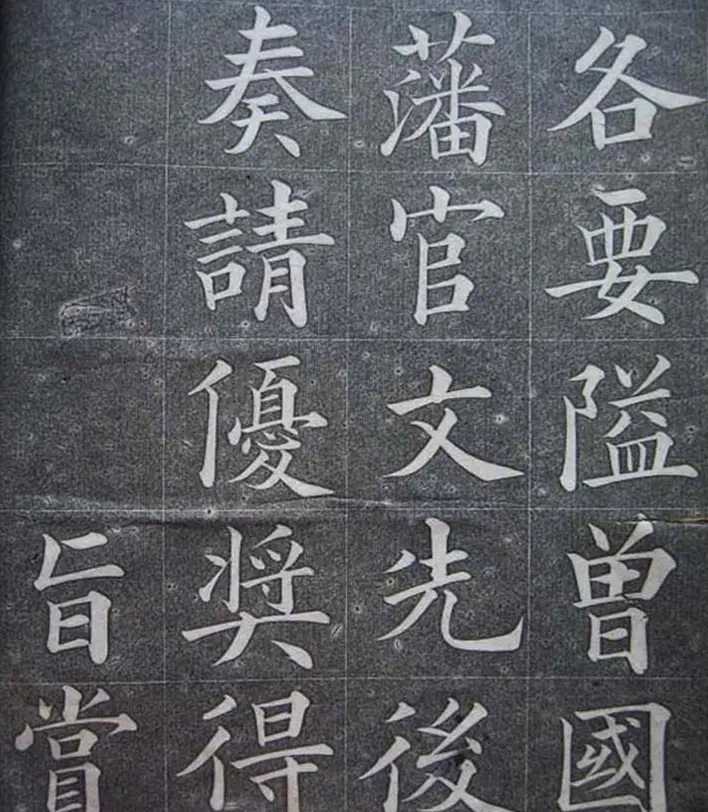 各要隘曾國
藩官文先後
奏請優奬得
旨賞